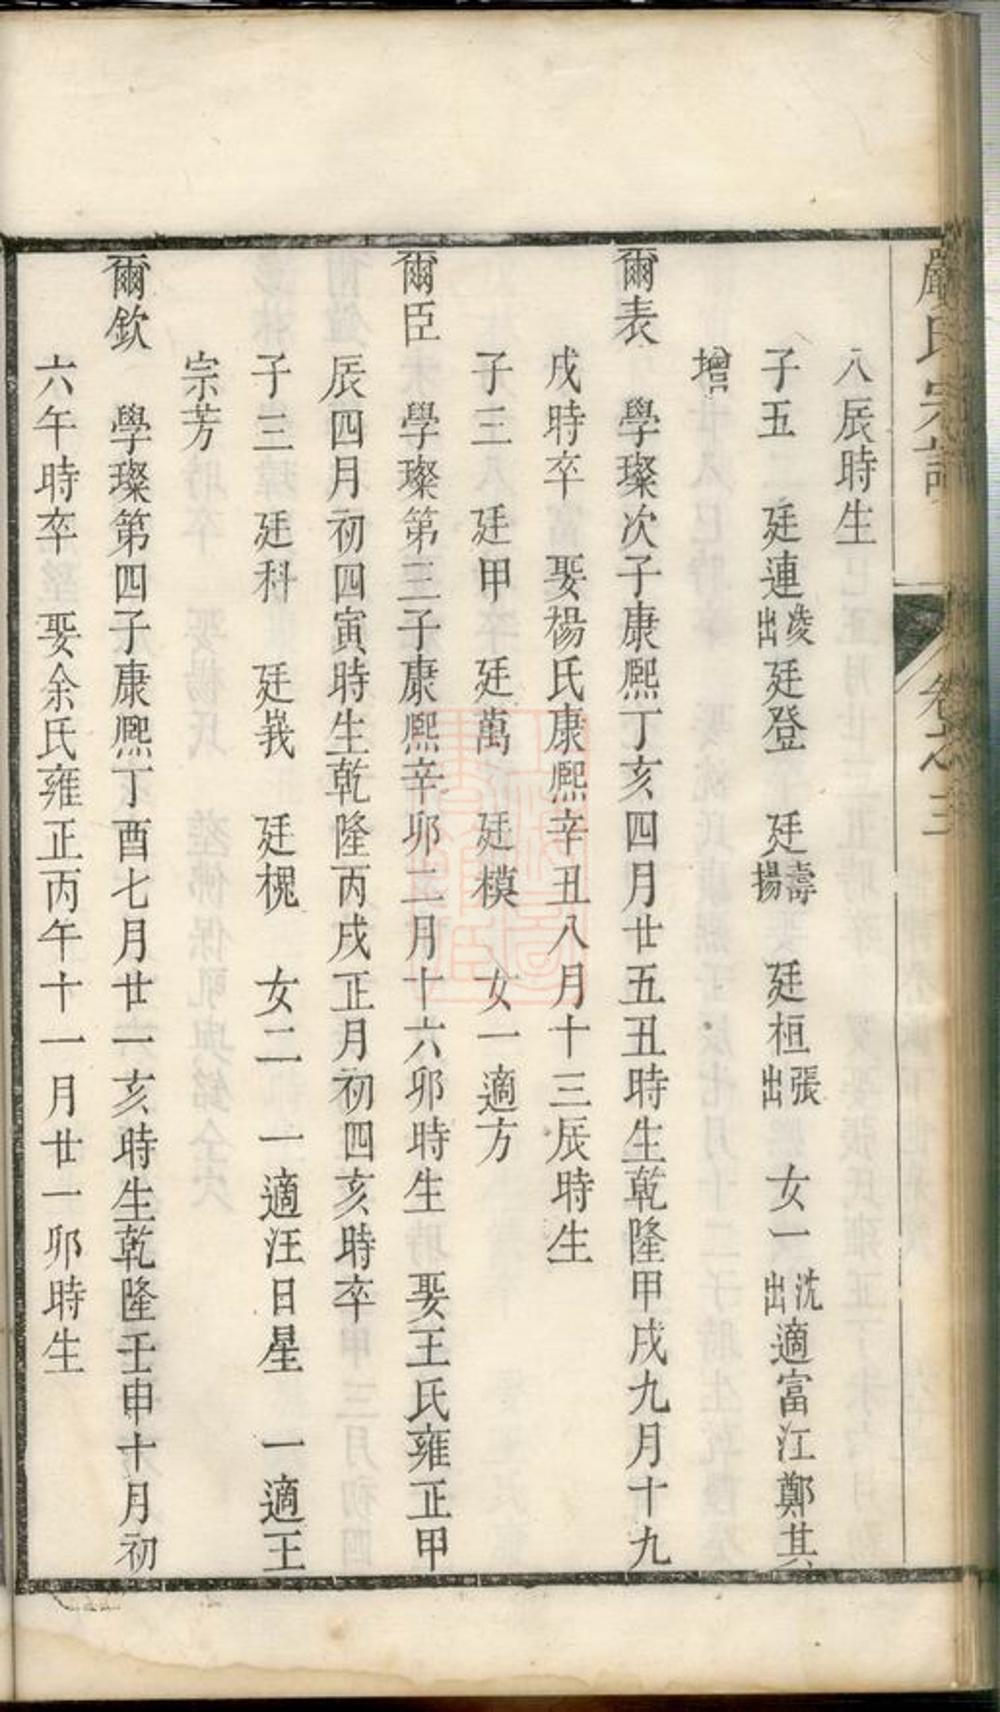 嚴氏宗譜 卷之三
八辰時生
子五 廷連凌出 廷登 廷壽揚 廷桓張出 女一沈出適富江鄭其
增
爾表 學璨次子康熙丁亥四月廿五丑時生乾隆甲戌九月十九
戌時卒 娶楊氏康熙辛丑八月十三辰時生
子三 廷甲 廷萬 廷模 女一適方
爾臣 學璨第三子康熙辛卯二月十六卯時生 娶王氏雍正甲
辰四月初四寅時生乾隆丙戌正月初四亥時卒
子三 廷科 廷峩 廷槐 女二 一適汪日星 一適王
宗芳
爾欽 學璨第四子康熙丁酉七月廿一亥時生乾隆壬申十月初
六午時卒 娶余氏雍正丙午十一月廿一卯時生